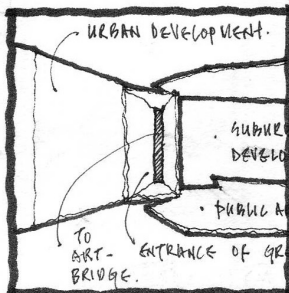 URBAN DEVELOPMENT.
• SUBUR
DEVELO
• PUBLIC A
TO
ART-
BRIDGE.
ENTRANCE OF GR